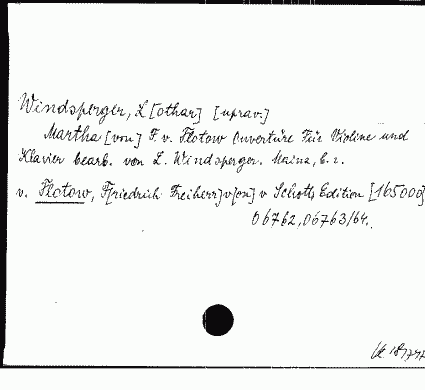 Windsperger, L[othar] [uprav.]
Martha [von] F. v. Flotow Ouvertüre Für Violine und
Klavier bearb. von L. Windsperger. Mainz, b. r.
v. Flotow, F[riedrich Freiherr] v[on] v Schotts Edition [165000]
06762, 06763/64.